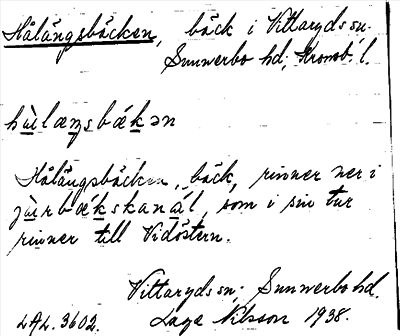 Hålängsbäcken, bäck i Vittaryds sn.
Sunnerbo hd; Kronob. l.
hùlæŋsbækən
Hålängsbäcken, bäck, rinner ner i
jùrbækskanál, som i sin tur
rinner till Vidöstern.
Vittaryds sn; Sunnerbo hd.
LAL. 3602. Lage Nilsson 1938.